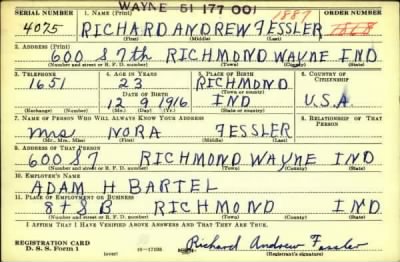 WAYNE 51 177 001
SERIAL NUMBER 1. NAME (Print) 1887 ORDER NUMBER
4075 RICHARD ANDREW FESSLER 1868
(First) (Middle) (Last)
2. ADDRESS (Print)
600 S 7th RICHMOND WAYNE IND
(Number and street or R. F. D. number) (Town) (County) (State)
3. TELEPHONE 4. AGE IN YEARS 5. PLACE OF BIRTH 6. COUNTRY OF CITIZENSHIP
1651 23 RICHMOND
DATE OF BIRTH (Town or county)
12 9 1916 IND U.S.A.
(Exchange) (Number) (Mo.) (Day) (Yr.) (State or country)
7. NAME OF PERSON WHO WILL ALWAYS KNOW YOUR ADDRESS 8. RELATIONSHIP OF THAT PERSON
Mrs NORA FESSLER
(Mr., Mrs., Miss) (First) (Middle) (Last)
9. ADDRESS OF THAT PERSON
600 S 7 RICHMOND WAYNE IND
(Number and street or R. F. D. number) (Town) (County) (State)
10. EMPLOYER'S NAME
ADAM H BARTEL
11. PLACE OF EMPLOYMENT OR BUSINESS
8 + S B RICHMOND IND.
(Number and street or R. F. D. number) (Town) (County) (State)
I AFFIRM THAT I HAVE VERIFIED ABOVE ANSWERS AND THAT THEY ARE TRUE.
REGISTRATION CARD
D. S. S. Form 1 (over) 16—17105 Richard Andrew Fessler
(Registrant's signature)